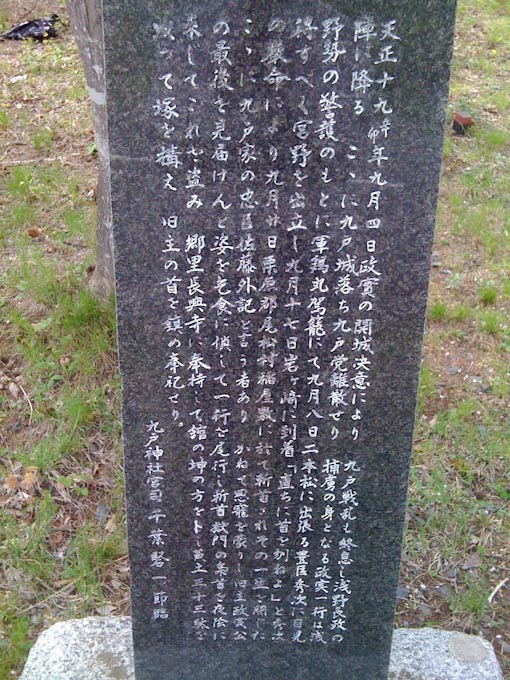 天正十九辛卯年九月四日政實の開城決意により 九戸戦乱も終息し浅野長政の
陣に降る こゝに九戸城落ち九戸党離散せり 捕虜の身となる政実一行は浅
野勢の警護のもとに軍鶏丸駕籠にて九月八日二本松に出張る豊臣秀次に目見
得すべく宮野を出立し九月十七日岩ヶ崎に到着「直ちに首を刎ねよ」と秀次
の厳命により九月廿日栗原郡尾松村稲屋敷に於て斬首されその一生を閉じた
こゝに九戸家の忠臣佐藤外記と言う者あり かねて恩寵を蒙りし旧主政實公
の最後を見届けんと姿を乞食に偵して一行を尾行し斬首獄門の梟首を夜陰に
乗じてこれを盗み 郷里長興寺に奉持して舘の坤の方をト し黄土三十三駄を
以って塚を構え 旧主の首を鎮め奉祀せり。
九戸神社宮司 千葉 一 節